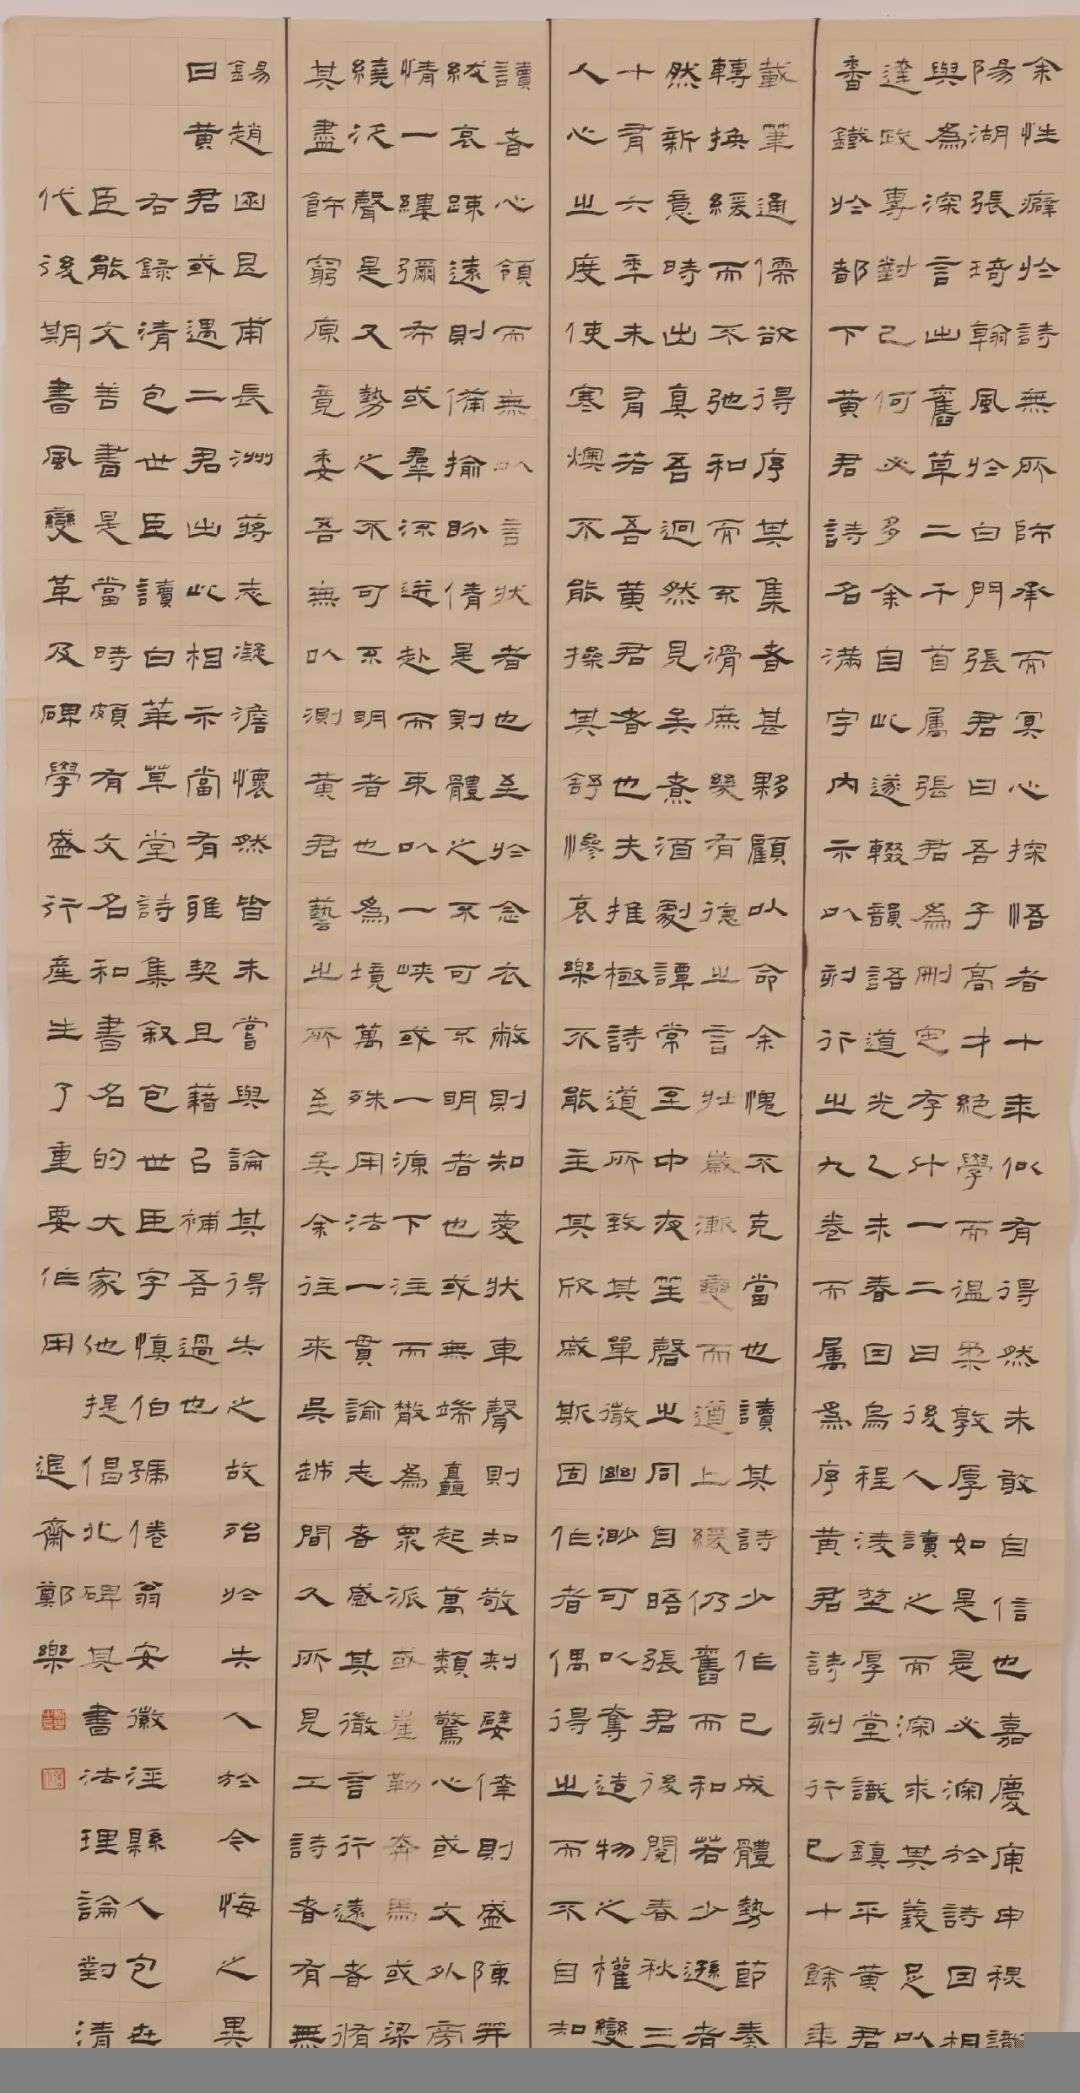 余性癖於詩無所師承而冥心探悟者十年似有得然未敢自信也嘉慶庚申稷識
陽湖張琦翰風於白門張君曰吾子高才絕學而溫柔敦厚如是是必深於詩因相
與為深言出舊草二千首屬張君為刪定存什一二曰後人讀之而深求其義足以
達政專對已何必多余自此遂輟韻語道光乙未春因烏程淩堃厚堂識鎮平黃君
香鐵於都下黃君詩名滿宇內示以刻行之九卷而屬為序黃君詩刻行已十餘年
載筆通儒欲得序其集者甚夥顧以命余愧不克當也讀其詩少作已成體勢節奏
轉換緩而不弛和而不滑庶幾有德之言壯歲漸變而遒上緩仍舊而和若少遜者
然新意時出真吾迥然見矣煮酒劇譚常至中夜笙磬之同自晤張君後閱春秋三
十有六年未有若吾黃君者也夫推極詩道所致其單微幽渺可以奪造物之權變
人心之度使寒燠不能操其舒慘哀樂不能主其欣戚斯固作者偶得之而不自知
讀者心領而無以言狀者也至於念衣敝則知愛狀車聲則知敬刻嬖倖則盛陳笄
紱哀踈遠則備揄盼倩是則體之不可不明者也或無端矗起萬類驚心或文外旁
情一縷彌布或羣流迸赴而束以一峽或一源下注而散為眾派或崖勒奔馬或梁
繞汎聲是又勢之不可不明者也為境萬殊用法一貫諭志者感其微言行遠者脩
其盡飾窮原竟委吾無以測黃君藝之所至矣余往來吳越間久所見工詩者有無
錫趙函艮甫長洲蔣志凝澹懷然皆未嘗與論其得失之故殆於失人於今悔之異
日黃君或遇二君出此相示當有雅契且藉㠯補吾過也
右錄清包世臣讀白華草堂詩集敘包世臣字慎伯號倦翁安徽涇縣人包世
臣能文善書是當時頗有文名和書名的大家他提倡北碑其書法理論對清
代後期書風變革及碑學盛行產生了重要作用 退齋鄭樂